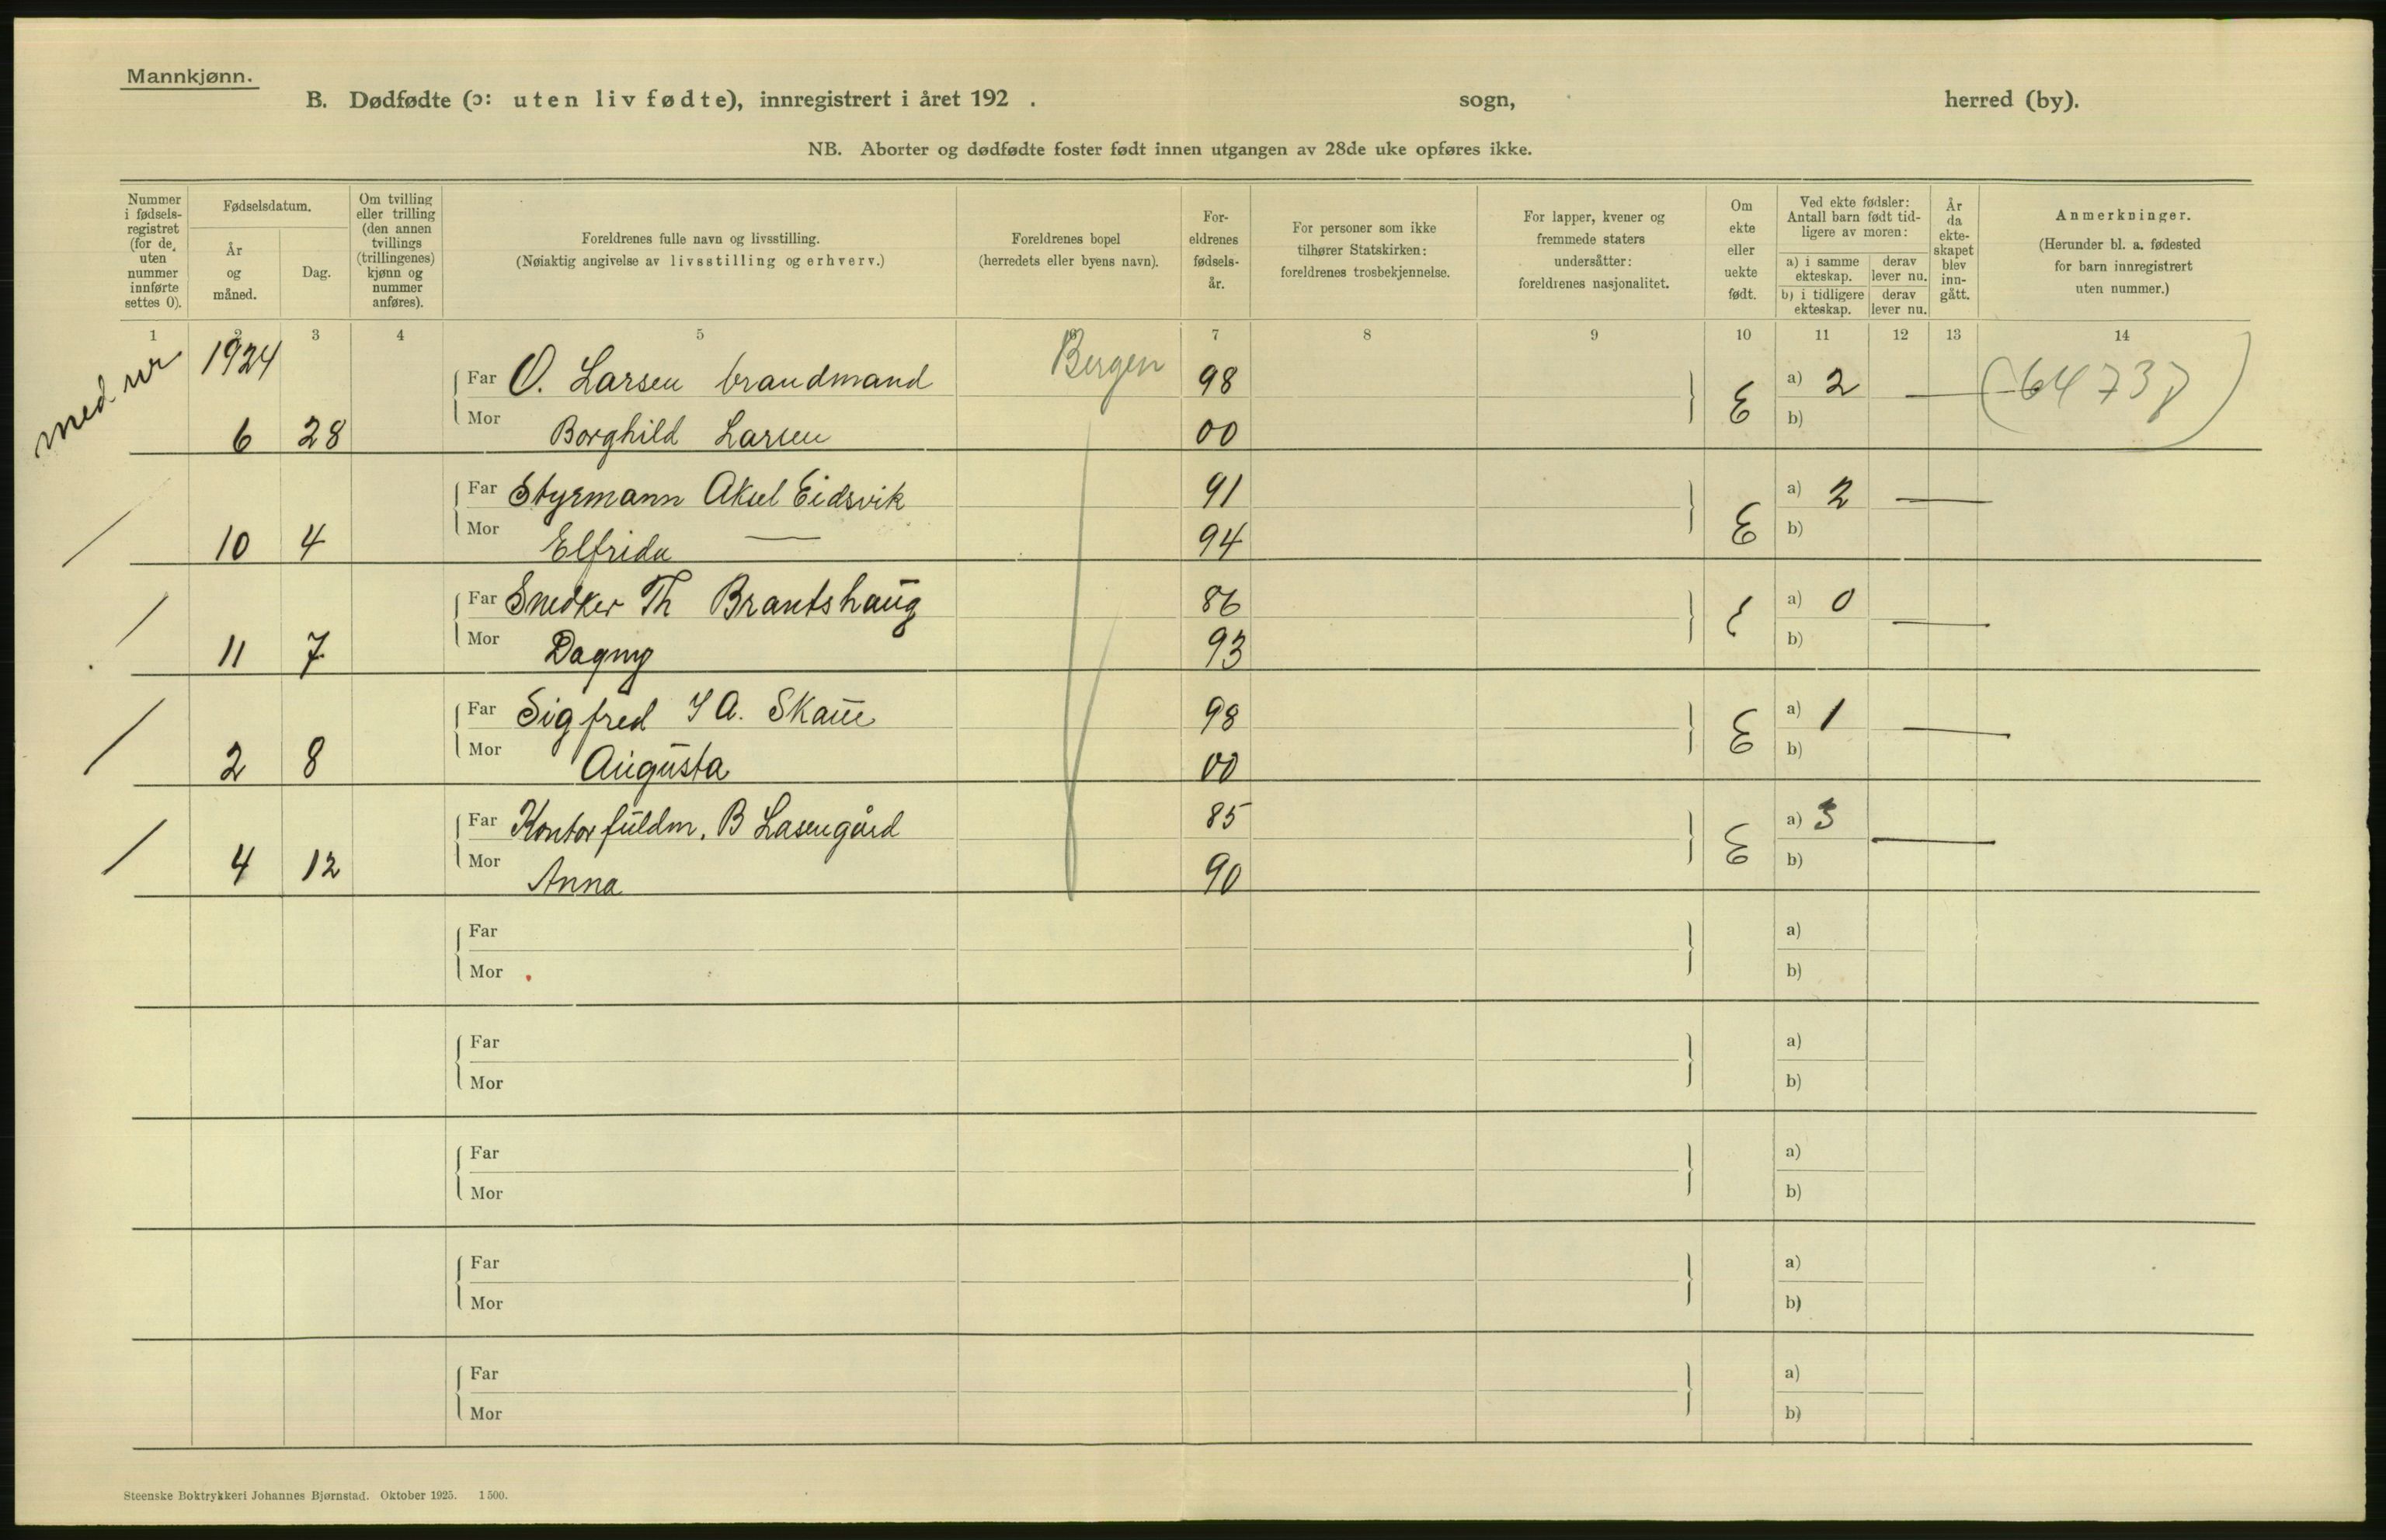 Mannkjønn.
B. Dødfødte (ɔ: uten liv fødte), innregistrert i året 192 . sogn, herred (by).
NB. Aborter og dødfødte foster født innen utgangen av 28de uke opføres ikke.
Nummer i fødsels-registret (for de uten nummer innførte settes 0).
Fødselsdatum.
År og måned.
Dag.
Om tvilling eller trilling (den annen tvillings (trillingenes) kjønn og nummer anføres).
Foreldrenes fulle navn og livsstilling.
(Nøiaktig angivelse av livsstilling og erhverv.)
Foreldrenes bopel
(herredets eller byens navn).
For-eldrenes fødsels-år.
For personer som ikke tilhører Statskirken: foreldrenes trosbekjennelse.
For lapper, kvener og fremmede staters undersåtter: foreldrenes nasjonalitet.
Om ekte eller uekte født.
Ved ekte fødsler: Antall barn født tid-ligere av moren:
a) i samme ekteskap. derav lever nu.
b) i tidligere ekteskap. derav lever nu.
År da ekte-skapet blev inn-gått.
Anmerkninger.
(Herunder bl. a. fødested for barn innregistrert uten nummer.)
1 2 3 4 5 7 8 9 10 11 12 13 14
med nr 1924 Bergen
Far O. Larsen brandmand 98 E a) 2 — (64737)
6 28 Mor Borghild Larsen 00 b)
Far Styrmann Aksel Eidsvik 91 E a) 2 —
/ 10 4 Mor Elfrida — 94 b)
Far Snedker Th Brantshaug 86 E a) 0 —
/ 11 7 Mor Dagny 93 b)
Far Sigfred A. Skaue 98 E a) 1 —
/ 2 8 Mor Augusta 00 b)
Far Kontorfuldm. B Lasengård 85 E a) 3 —
/ 4 12 Mor Anna 90 b)
Far a)
Mor b)
Far a)
Mor b)
Far a)
Mor b)
Far a)
Mor b)
Far a)
Mor b)
Steenske Boktrykkeri Johannes Bjørnstad. Oktober 1925. 1500.